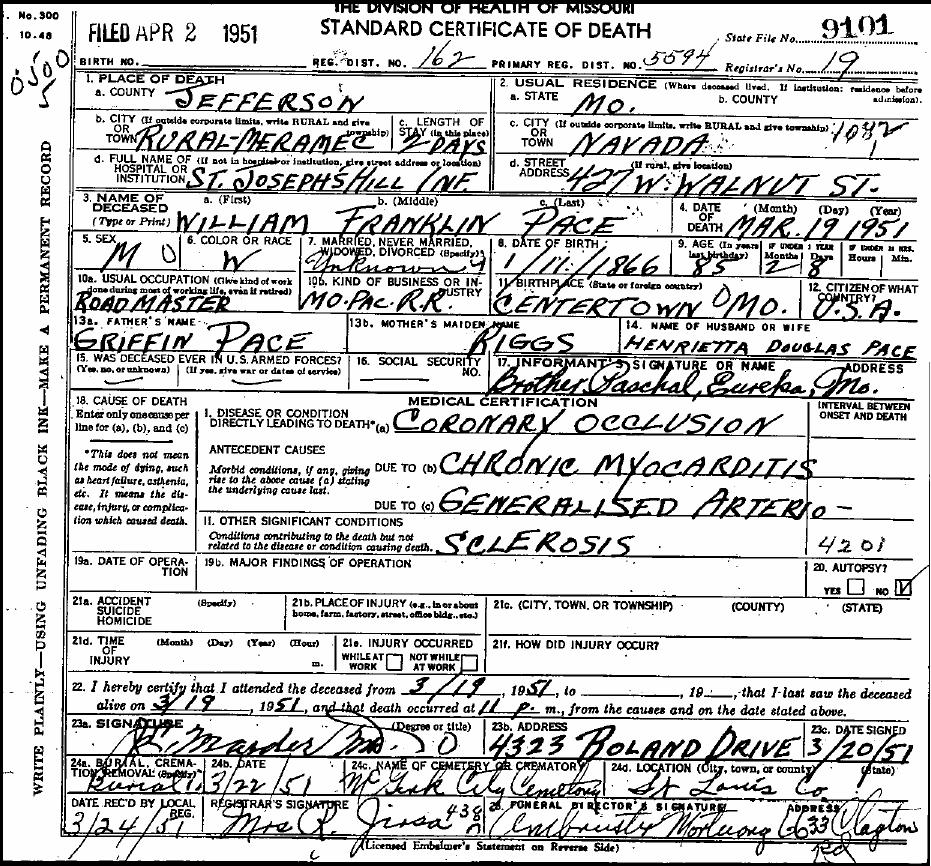 THE DIVISION OF HEALTH OF MISSOURI
STANDARD CERTIFICATE OF DEATH
No. 300
10.48
FILED APR 2 1951
State File No. 9101
BIRTH NO. REG. DIST. NO. 162 PRIMARY REG. DIST. NO. 5594 Registrar's No. 19
WRITE PLAINLY—USING UNFADING BLACK INK—MAKE A PERMANENT RECORD
1. PLACE OF DEATH
a. COUNTY JEFFERSON
2. USUAL RESIDENCE (Where deceased lived. If institution: residence before admission).
a. STATE MO. b. COUNTY
b. CITY (If outside corporate limits, write RURAL and give township) OR TOWN RURAL-MERAMEC
c. LENGTH OF STAY (in this place) 2 DAYS
c. CITY (If outside corporate limits, write RURAL and give township) OR TOWN NAVADA
d. FULL NAME OF (If not in hospital or institution, give street address or location) HOSPITAL OR INSTITUTION ST. JOSEPH'S HILL INF.
d. STREET ADDRESS (If rural, give location) 427 W. WALNUT ST.
3. NAME OF DECEASED (Type or Print) a. (First) b. (Middle) c. (Last)
WILLIAM FRANKLIN PACE
4. DATE OF DEATH (Month) (Day) (Year)
MAR. 19 1951
5. SEX M 0
6. COLOR OR RACE W
7. MARRIED, NEVER MARRIED, WIDOWED, DIVORCED (Specify) Unknown 9
8. DATE OF BIRTH 1/11/1866
9. AGE (In years last birthday) 85 IF UNDER 1 YEAR Months 2 Days 8 IF UNDER 24 HRS. Hours Min.
10a. USUAL OCCUPATION (Give kind of work done during most of working life, even if retired) ROAD MASTER
10b. KIND OF BUSINESS OR INDUSTRY MO. PAC. R.R.
11. BIRTHPLACE (State or foreign country) CENTERTOWN 0 MO.
12. CITIZEN OF WHAT COUNTRY? U.S.A.
13a. FATHER'S NAME GRIFFIN PACE
13b. MOTHER'S MAIDEN NAME RIGGS
14. NAME OF HUSBAND OR WIFE HENRIETTA DOUGLAS PACE
15. WAS DECEASED EVER IN U.S. ARMED FORCES? (Yes, no, or unknown) (If yes, give war or dates of service)
16. SOCIAL SECURITY NO.
17. INFORMANT'S SIGNATURE OR NAME ADDRESS
Brother Paschal, Eureka, Mo.
18. CAUSE OF DEATH
Enter only one cause per line for (a), (b), and (c)
*This does not mean the mode of dying, such as heart failure, asthenia, etc. It means the disease, injury, or complication which caused death.
MEDICAL CERTIFICATION
INTERVAL BETWEEN ONSET AND DEATH
I. DISEASE OR CONDITION DIRECTLY LEADING TO DEATH* (a) CORONARY OCCLUSION
ANTECEDENT CAUSES
Morbid conditions, if any, giving rise to the above cause (a) stating the underlying cause last.
DUE TO (b) CHRONIC MYOCARDITIS
DUE TO (c) GENERALISED ARTERIO-
II. OTHER SIGNIFICANT CONDITIONS
Conditions contributing to the death but not related to the disease or condition causing death. SCLEROSIS
4201
19a. DATE OF OPERATION
19b. MAJOR FINDINGS OF OPERATION
20. AUTOPSY?
YES NO
21a. ACCIDENT SUICIDE HOMICIDE (Specify)
21b. PLACE OF INJURY (e.g., in or about home, farm, factory, street, office bldg., etc.)
21c. (CITY, TOWN, OR TOWNSHIP) (COUNTY) (STATE)
21d. TIME OF INJURY (Month) (Day) (Year) (Hour) m.
21e. INJURY OCCURRED WHILE AT WORK NOT WHILE AT WORK
21f. HOW DID INJURY OCCUR?
22. I hereby certify that I attended the deceased from 3/19, 1951, to , 19 , that I last saw the deceased
alive on 3/19, 1951, and that death occurred at 11 P. m., from the causes and on the date stated above.
23a. SIGNATURE (Degree or title)
23b. ADDRESS 4323 ROLAND DRIVE
23c. DATE SIGNED 3/20/51
24a. BURIAL, CREMATION, REMOVAL (Specify) Burial
24b. DATE 3/22/51
24c. NAME OF CEMETERY OR CREMATORY City Cemetery
24d. LOCATION (City, town, or county) (State) St. Louis Co
DATE REC'D BY LOCAL REG. 3/24/51
REGISTRAR'S SIGNATURE Mrs R. Jirsa
25. FUNERAL DIRECTOR'S SIGNATURE ADDRESS
6633 Clayton Rd
(Licensed Embalmer's Statement on Reverse Side)